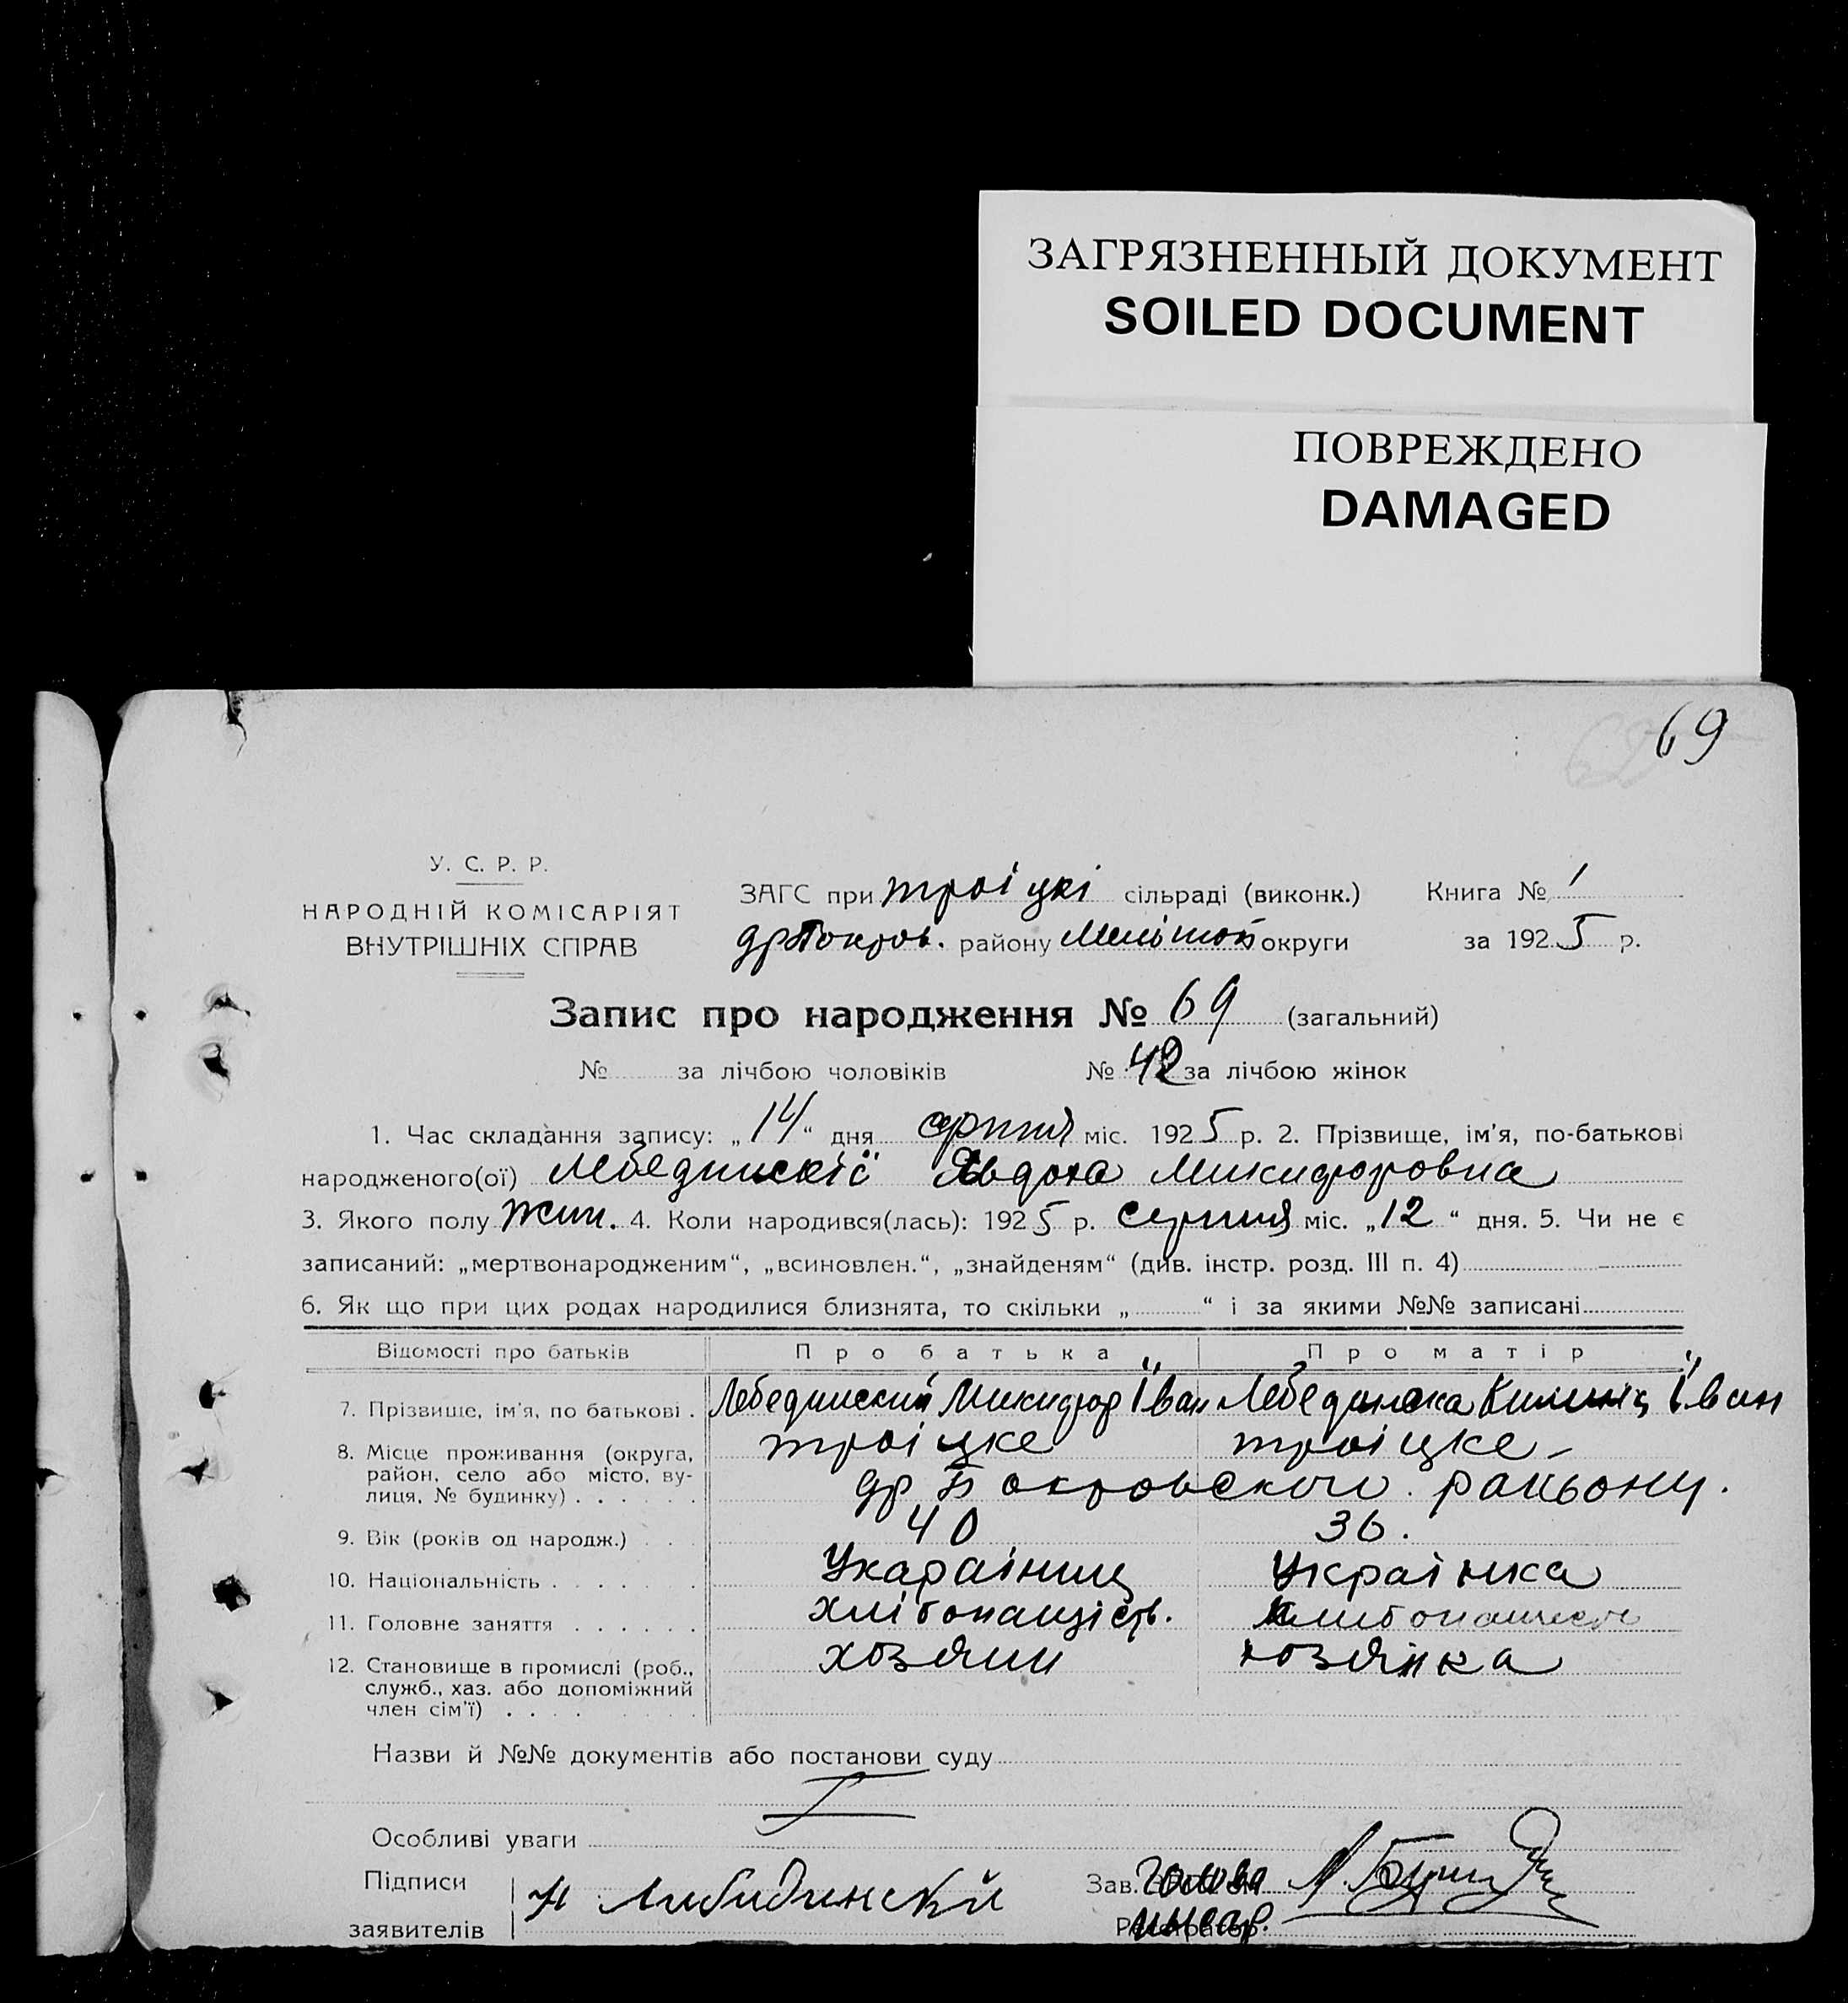 ЗАГРЯЗНЕННЫЙ ДОКУМЕНТ
SOILED DOCUMENT
ПОВРЕЖДЕНО
DAMAGED
69
У. С. Р. Р.
НАРОДНІЙ КОМІСАРІЯТ
ВНУТРІШНІХ СПРАВ
ЗАГС при троіцкі сільраді (виконк.) Книга № 1
др Покров. району Мелітоп округи за 1925 р.
Запис про народження № 69 (загальний)
№ за лічбою чоловіків № 42 за лічбою жінок
1. Час складання запису: „14“ дня серпня міс. 1925 р. 2. Прізвище, ім'я, по-батькові
народженого(ої) Лебединскії Явдоха Микидоровна
3. Якого полу жин. 4. Коли народився(лась): 1925 р. серпня міс. „12“ дня. 5. Чи не є
записаний: „мертвонародженим“, „всиновлен.“, „знайденям“ (див. інстр. розд. III п. 4)
6. Як що при цих родах народилися близнята, то скільки „ “ і за якими №№ записані
Відомості про батьків Про батька Про матір
7. Прізвище, ім'я, по батькові . Лебединский Микидор Іван Лебединска Іван
8. Місце проживання (округа, троіцке троіцке
район, село або місто, ву-
лиця, № будинку) . . . . . . др Покровского районy.
9. Вік (років од народж.) . . . 40 36.
10. Національність . . . . . . Украінец Украінка
11. Головне заняття . . . . . .
12. Становище в промислі (роб., хозяин хозяйка
служб., хаз. або допоміжний
член сім'ї) . . . .
Назви й №№ документів або постанови суду
Особливі уваги
Підписи Либидинский Зав. Голова
заявителів